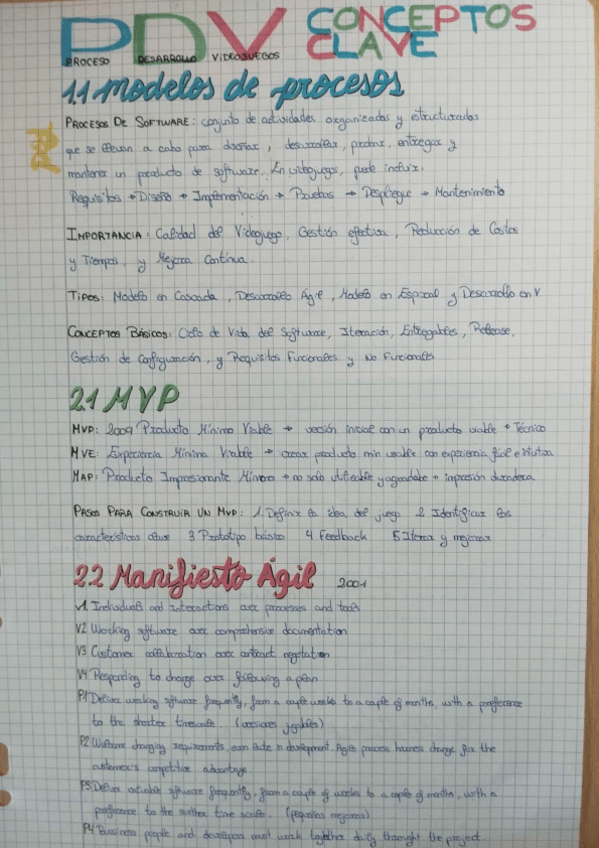 PDV CONCEPTOS CLAVE
PROCESO DESARROLLO VIDEOJUEGOS
1.1 modelos de procesos
PROCESOS DE SOFTWARE: conjunto de actividades organizadas y estructuradas
que se llevan a cabo para diseñar, desarrollar, probar, entregar y
mantener un producto de software. En videojuegos, puede incluir:
Requisitos → Diseño → Implementación → Pruebas → Despliegue → Mantenimiento
IMPORTANCIA: Calidad del Videojuego, Gestión efectiva, Reducción de Costos
y Tiempos, y Mejora Continua.
TIPOS: Modelo en Cascada, Desarrollo Ágil, Modelo en Espiral y Desarrollo en V
CONCEPTOS BÁSICOS: Ciclo de Vida del Software, Iteración, Entregables, Release,
Gestión de Configuración, y Requisitos Funcionales y No Funcionales
2.1 MVP
MVP: 2009 Producto Mínimo Viable → versión inicial con un producto viable + Técnico
MVE: Experiencia Mínima Viable → crear producto min usable con experiencia fácil e intuitiva
MAP: Producto Impresionante Mínimo → no solo utilizable y agradable + impresión duradera
PASOS PARA CONSTRUIR UN MVP: 1. Definir la idea del juego 2 Identificar las
características clave 3 Prototipo básico 4 Feedback 5 Iterar y mejorar
2.2 Manifiesto Ágil 2001
V1. Individuals and Interactions over processes and tools
V2 Working software over comprehensive documentation
V3 Customer collaboration over contract negotation
V4 Responding to change over following a plan
P1 Deliver working software frequently, from a couple weeks to a couple of months, with a preference
to the shorter timescale. (versiones jugables)
P2 Welcome changing requirements, even late in development. Agile process harness change for the
customer's competitive advantage
P3 Deliver valuable software frequently, from a couple of weeks to a couple of months, with a
preference to the shorter time scale. (pequeñas mejoras)
P4 Business people and developers must work together daily throught the project.